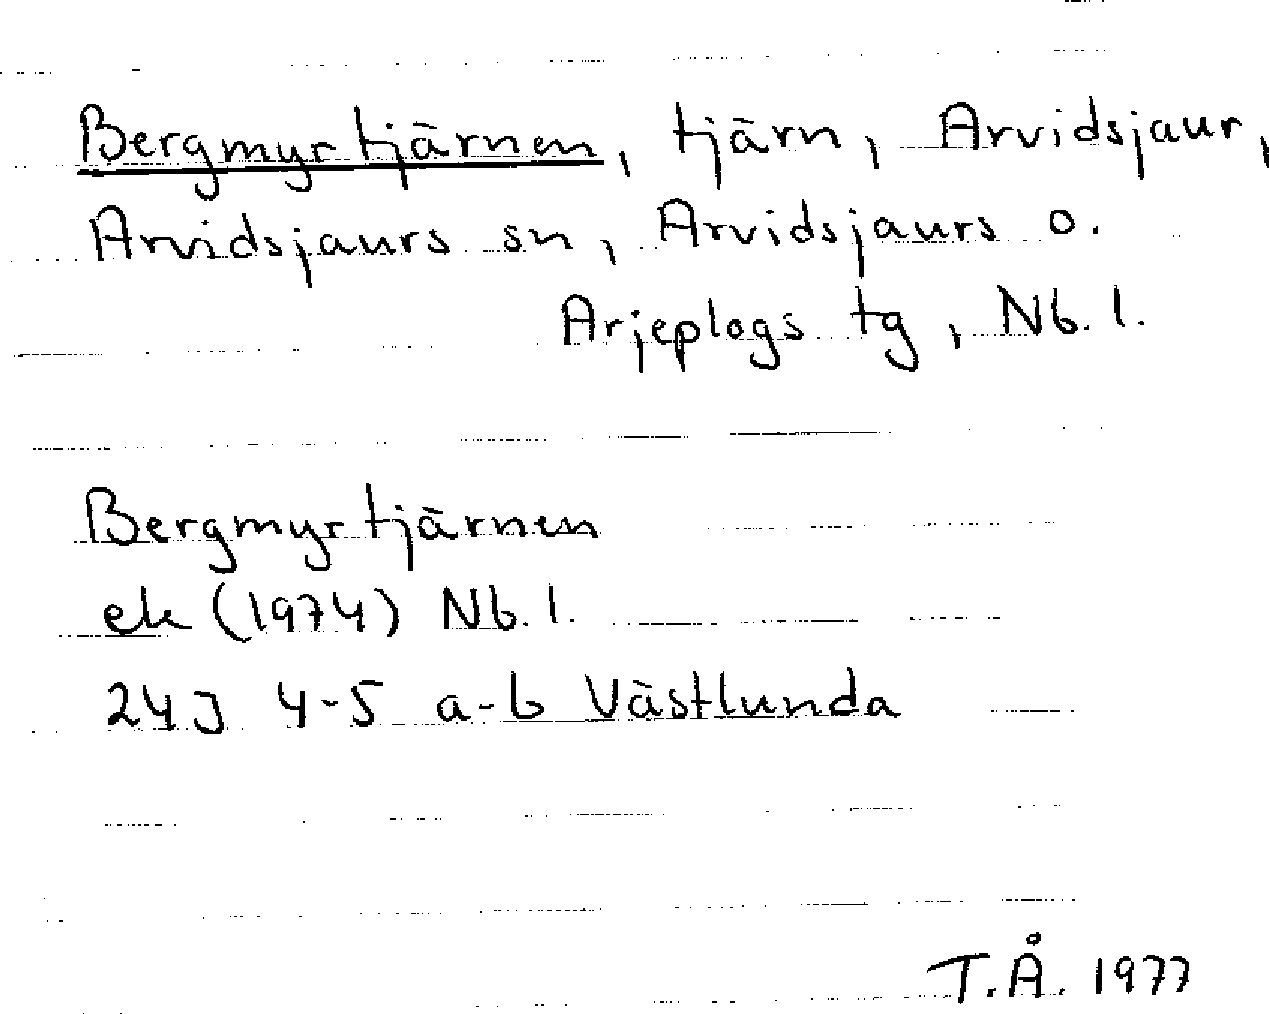 Bergmyrtjärnen, tjärn, Arvidsjaur,
Arvidsjaurs sn, Arvidsjaurs o.
Arjeplogs tg, Nb. l.
Bergmyrtjärnen
ek (1974) Nb. l.
24J 4-5 a-b Västlunda
T.Å. 1977